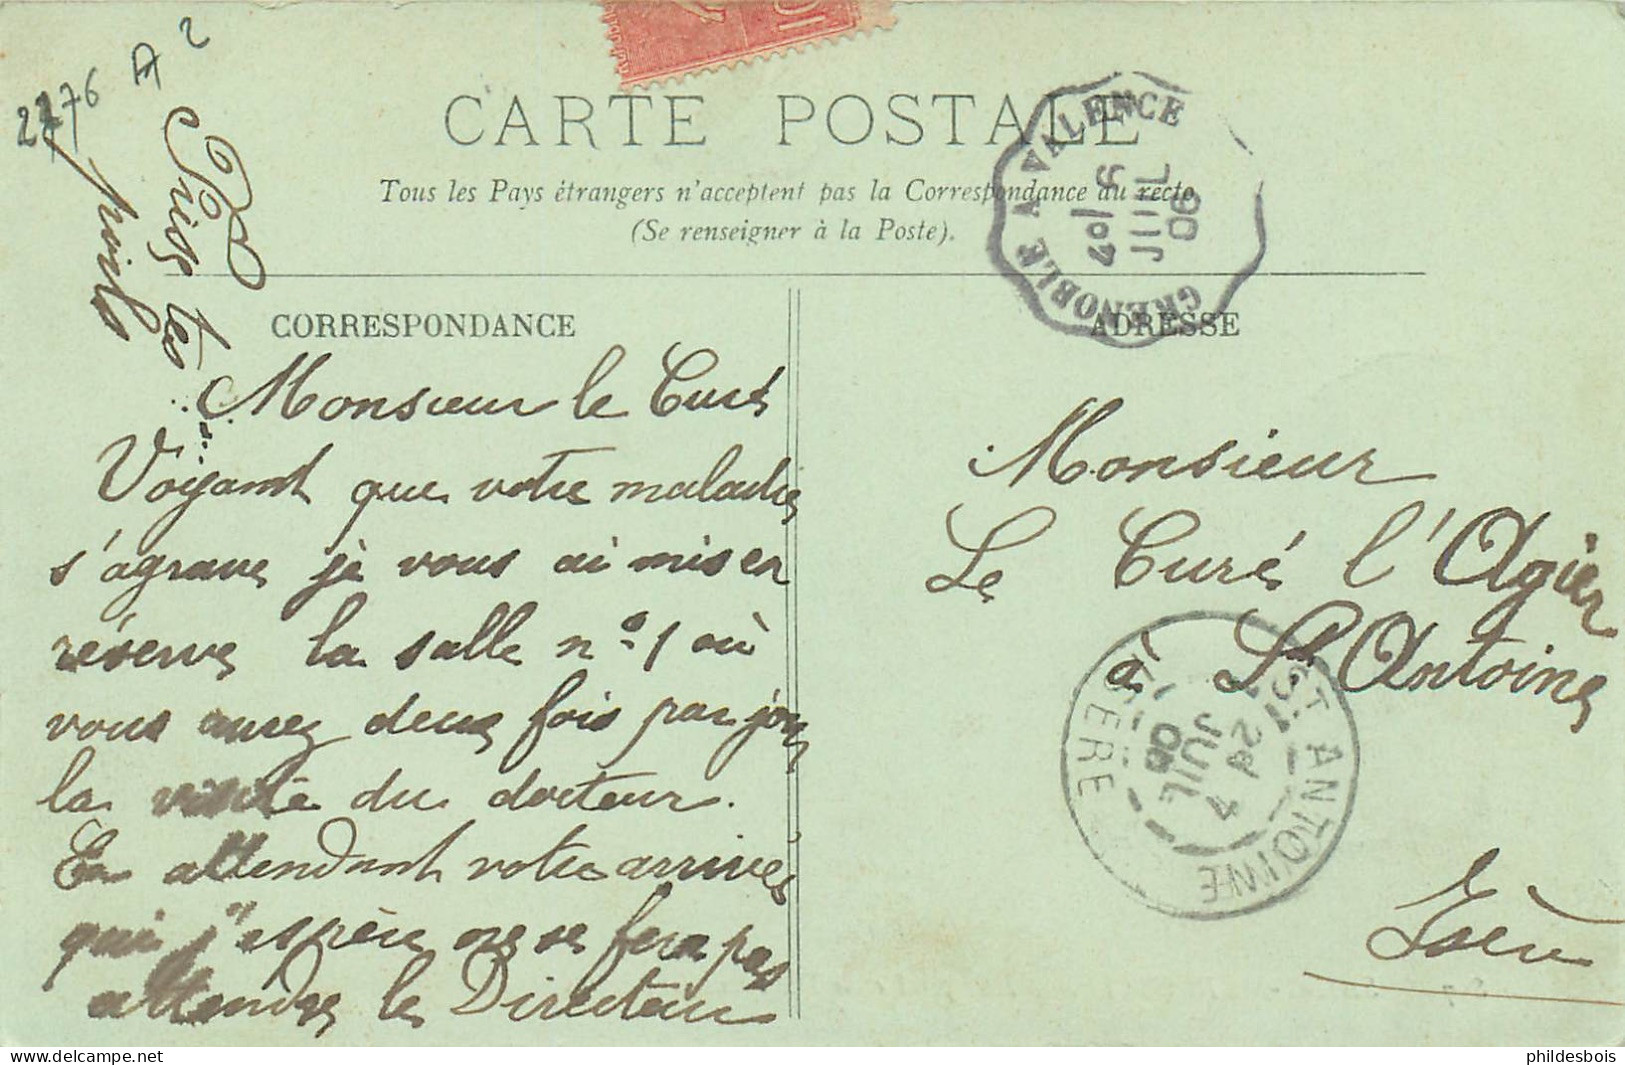 2276 A 2
CARTE POSTALE
Tous les Pays étrangers n'acceptent pas la Correspondance au recto
(Se renseigner à la Poste).
GRENOBLE A VALENCE
6
JUIL
06
CORRESPONDANCE
ADRESSE
Monsieur le Curé
Voyant que votre maladie
s'agrave je vous ai miser
réserve la salle nº 1 où
vous aurez deux fois par jour
la visite du docteur.
En attendant votre arrivée
qui j'espère ne se fera pas
attendre le Directeur
Monsieur
Le Curé l'Agier
à St Antoine
Isère
ST ANTOINE
ISERE
7
JUIL
06
10
phildesbois